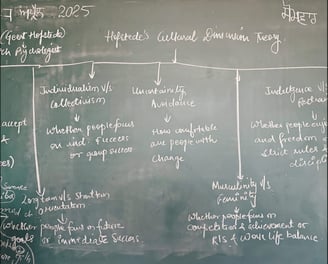 2025
ਸੋਮਵਾਰ
(Geert Hofstede)
ch Psychologist
Hofstede's Cultural Dimension Theory
Individualism v/s
Collectivism
Whether people focus
on ind. success
or group success
Uncertainity
Avoidance
How comfortable
are people with
Change
Indulgence v/s
Whether people enjoy
and freedom
strict rules &
accept
&
Long term v/s Short term
Orientation
people focus on future
or immediate Success.
Whether
goals
Masculinity v/s
Feminity
Whether people focus on
competition & achievement or
R/S & Work life balance